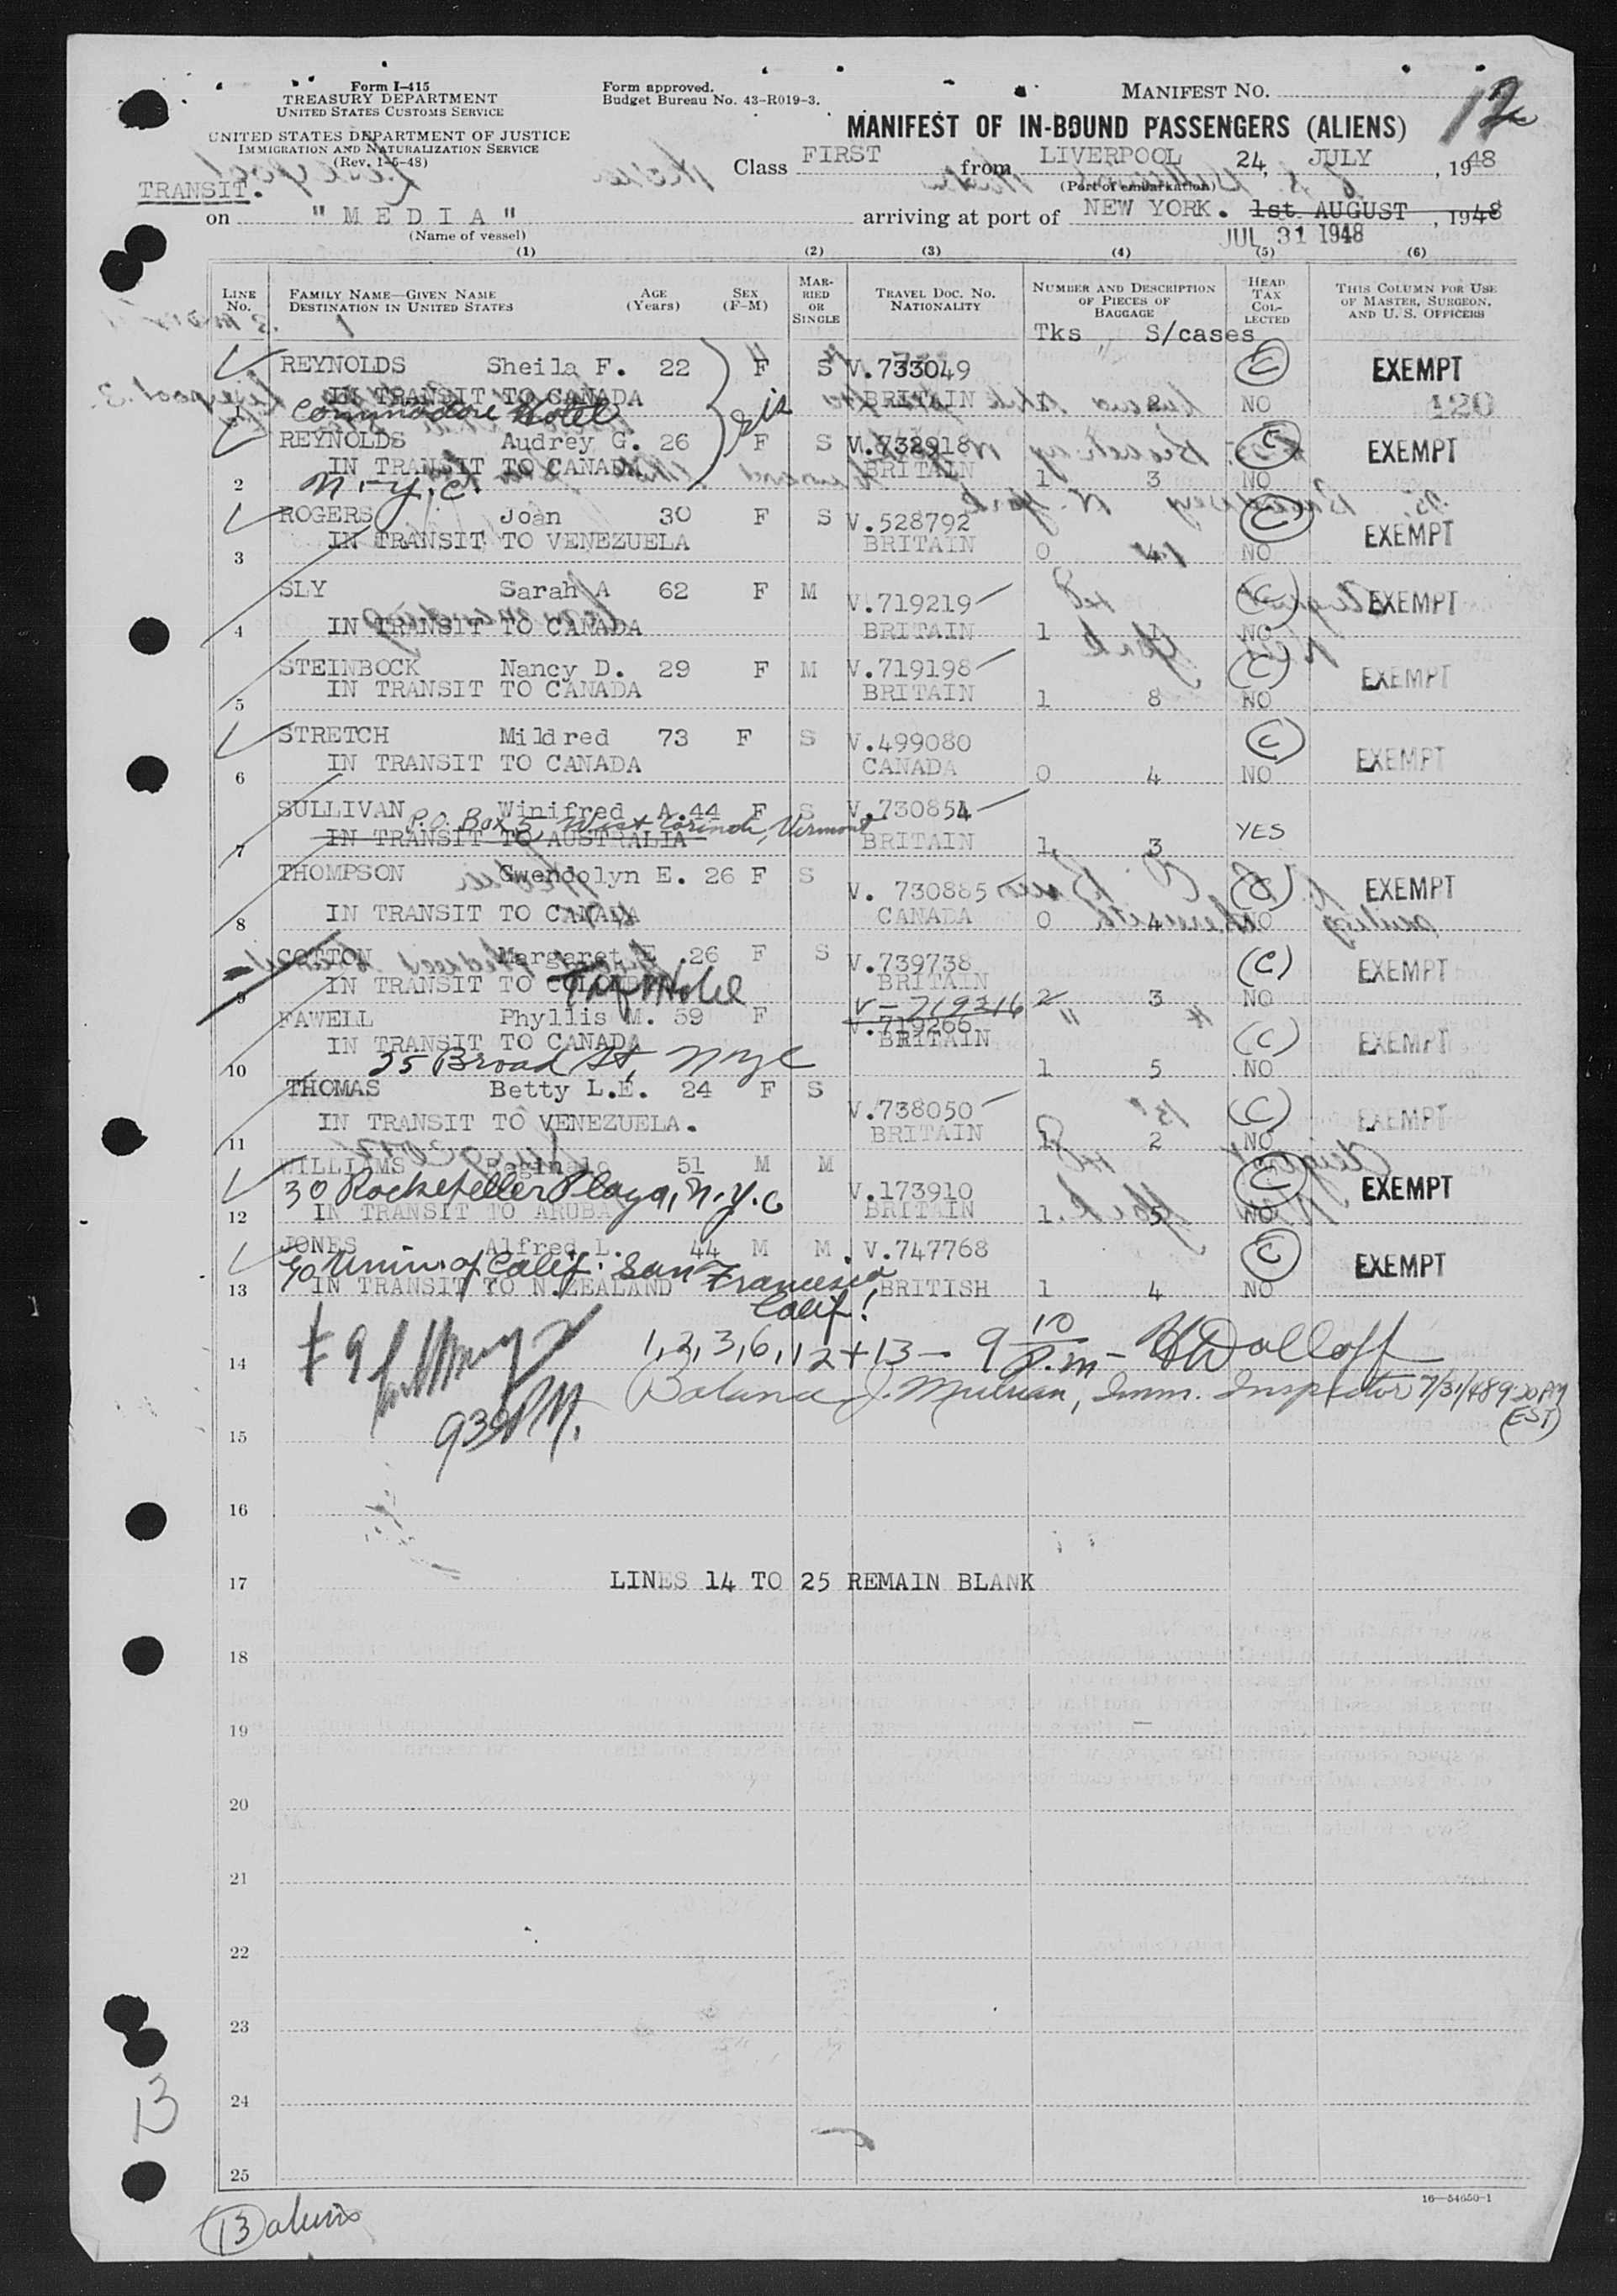 Form I-415
TREASURY DEPARTMENT
UNITED STATES CUSTOMS SERVICE
UNITED STATES DEPARTMENT OF JUSTICE
IMMIGRATION AND NATURALIZATION SERVICE
(Rev. 1-5-48)
Form approved.
Budget Bureau No. 43-R019-3.
MANIFEST NO.
12
MANIFEST OF IN-BOUND PASSENGERS (ALIENS)
TRANSIT.
Class FIRST from LIVERPOOL 24, JULY, 1948
(Port of embarkation)
on "MEDIA" arriving at port of NEW YORK. 1st AUGUST, 1948
(Name of vessel)
JUL 31 1948
(1) (2) (3) (4) (5) (6)
LINE NO. FAMILY NAME—GIVEN NAME DESTINATION IN UNITED STATES AGE (Years) SEX (F-M) MARRIED OR SINGLE TRAVEL DOC. NO. NATIONALITY NUMBER AND DESCRIPTION OF PIECES OF BAGGAGE HEAD TAX COLLECTED THIS COLUMN FOR USE OF MASTER, SURGEON, AND U. S. OFFICERS
Tks S/cases
REYNOLDS Sheila F. 22 F S V.733049 C EXEMPT
IN TRANSIT TO CANADA BRITAIN NO 120
1 Commodore Hotel
sis
REYNOLDS Audrey G. 26 F S V.732918 C EXEMPT
IN TRANSIT TO CANADA BRITAIN
2 N.Y.C. 1 3 NO
ROGERS Joan 30 F S V.528792 C EXEMPT
IN TRANSIT TO VENEZUELA BRITAIN
3 0 4 NO
SLY Sarah A 62 F M V.719219 C EXEMPT
4 IN TRANSIT TO CANADA BRITAIN 1 1 NO
STEINBOCK Nancy D. 29 F M V.719198 C EXEMPT
IN TRANSIT TO CANADA BRITAIN
5 1 8 NO
STRETCH Mildred 73 F S V.499080 C EXEMPT
IN TRANSIT TO CANADA CANADA
6 0 4 NO
SULLIVAN Winifred A. 44 F S V.730854
P.O. Box 5 West Corinth, Vermont
YES
7 IN TRANSIT TO AUSTRALIA BRITAIN 1 3
THOMPSON Gwendolyn E. 26 F S V. 730885 C EXEMPT
8 IN TRANSIT TO CANADA CANADA 0 4 NO
COTTON Margaret E. 26 F S V.739738 C EXEMPT
IN TRANSIT TO Taft Hotel BRITAIN
9 2 3 NO
V-719316
FAWELL Phyllis M. 59 F V.719266 C EXEMPT
IN TRANSIT TO CANADA BRITAIN
10 25 Broad St, NYC 1 5 NO
THOMAS Betty L.E. 24 F S V.738050 C EXEMPT
IN TRANSIT TO VENEZUELA. BRITAIN
11 1 2 NO
WILLIAMS Reginald 51 M M V.173910 C EXEMPT
30 Rockefeller Plaza, N.Y.C
12 IN TRANSIT TO ARUBA BRITAIN 1 5 NO
JONES Alfred L. 44 M M V.747768 C EXEMPT
c/o Univ. of Calif. San Francisco
13 IN TRANSIT TO N.ZEALAND BRITISH 1 4 NO
Calif!
14 # 9 1, 2, 3, 6, 12 + 13 — 9 10 P.m —
Imm. Inspector 7/31/48 9:20 PM
(EST)
15 930 P.M.
16
17 LINES 14 TO 25 REMAIN BLANK
18
19
20
21
22
23
24
13
25
16—54650-1
13 aliens